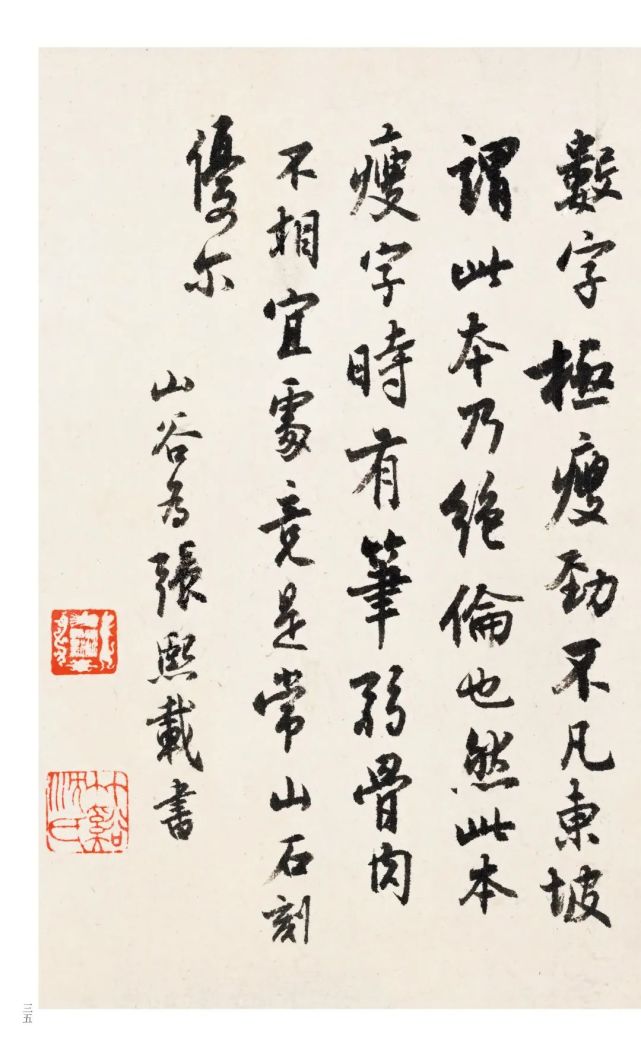 數字極瘦勁不凡東坡
謂此本乃絕倫也然此本
瘦字時有筆弱骨肉
不相宜處竟是常山石刻
優尔
山谷為張熙載書
三五